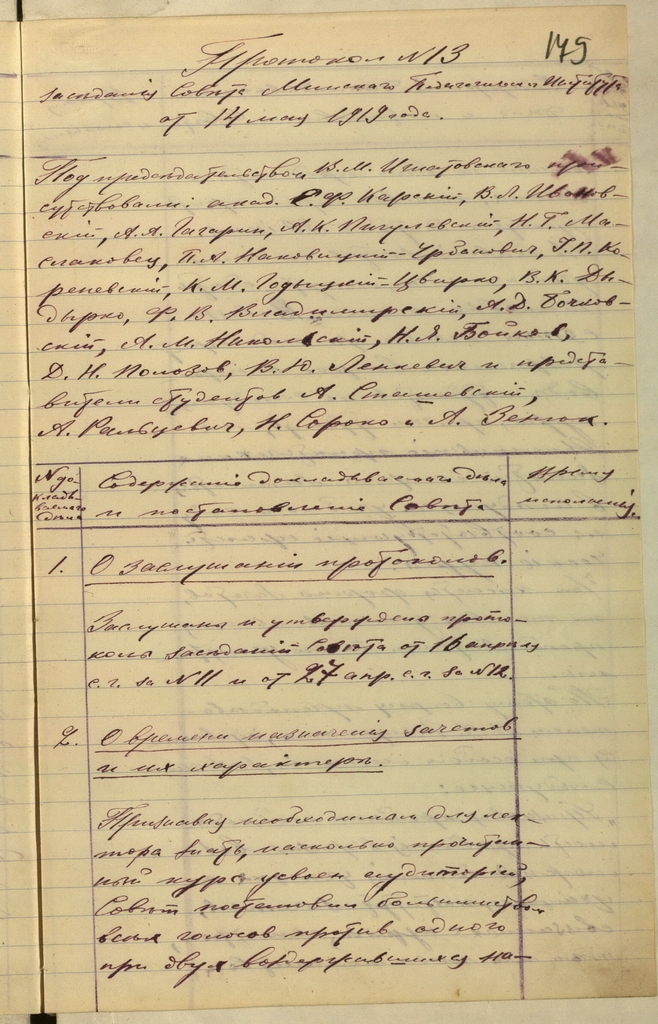 Протокол № 13
175
заседанія Совѣта Минскаго Педагогическаго Института
от 14 мая 1919 года.
Под предсѣдательством В. М. Игнатовскаго при-
сутствовали: акад. Е. Ф. Карскій, В. Л. Иванов-
скій, А. А. Гагарин, А. К. Пигулевскій, Н. Г. Ма-
слаковец, П. А. Наковицкій-Урбанович, І. П. Ко-
реневскій, К. М. Годыцкій-Цвирко, В. К. Ды-
дырко, Ф. В. Владимирскій, А. Д. Бочков-
скій, А. М. Никольскій, Н. Я. Бойков,
Д. Н. Полозов, В. Ю. Ленкевич и предста-
вители студентов А. Сташевскій,
А. Ральцевич, Н. Сороко и А. Зенюк.
№ до-
кладыв-
ваемаго
дѣла
Содержаніе докладываемаго дѣла
и постановленіе Совѣта
Время
исполненія.
1. О заслушаніи протоколов.
Заслушаны и утверждены прото-
колы засѣданій Совѣта от 16 апрѣля
с. г. за № 11 и от 27 апр. с. г. за № 12.
2. О времени назначенія зачетов
и их характерѣ.
Признавая необходимым для лек-
тора знать, насколько прочитан-
ный курс усвоен аудиторіей,
Совѣт постановил большинством
всѣх голосов против одного
при двух воздержавшихся на-